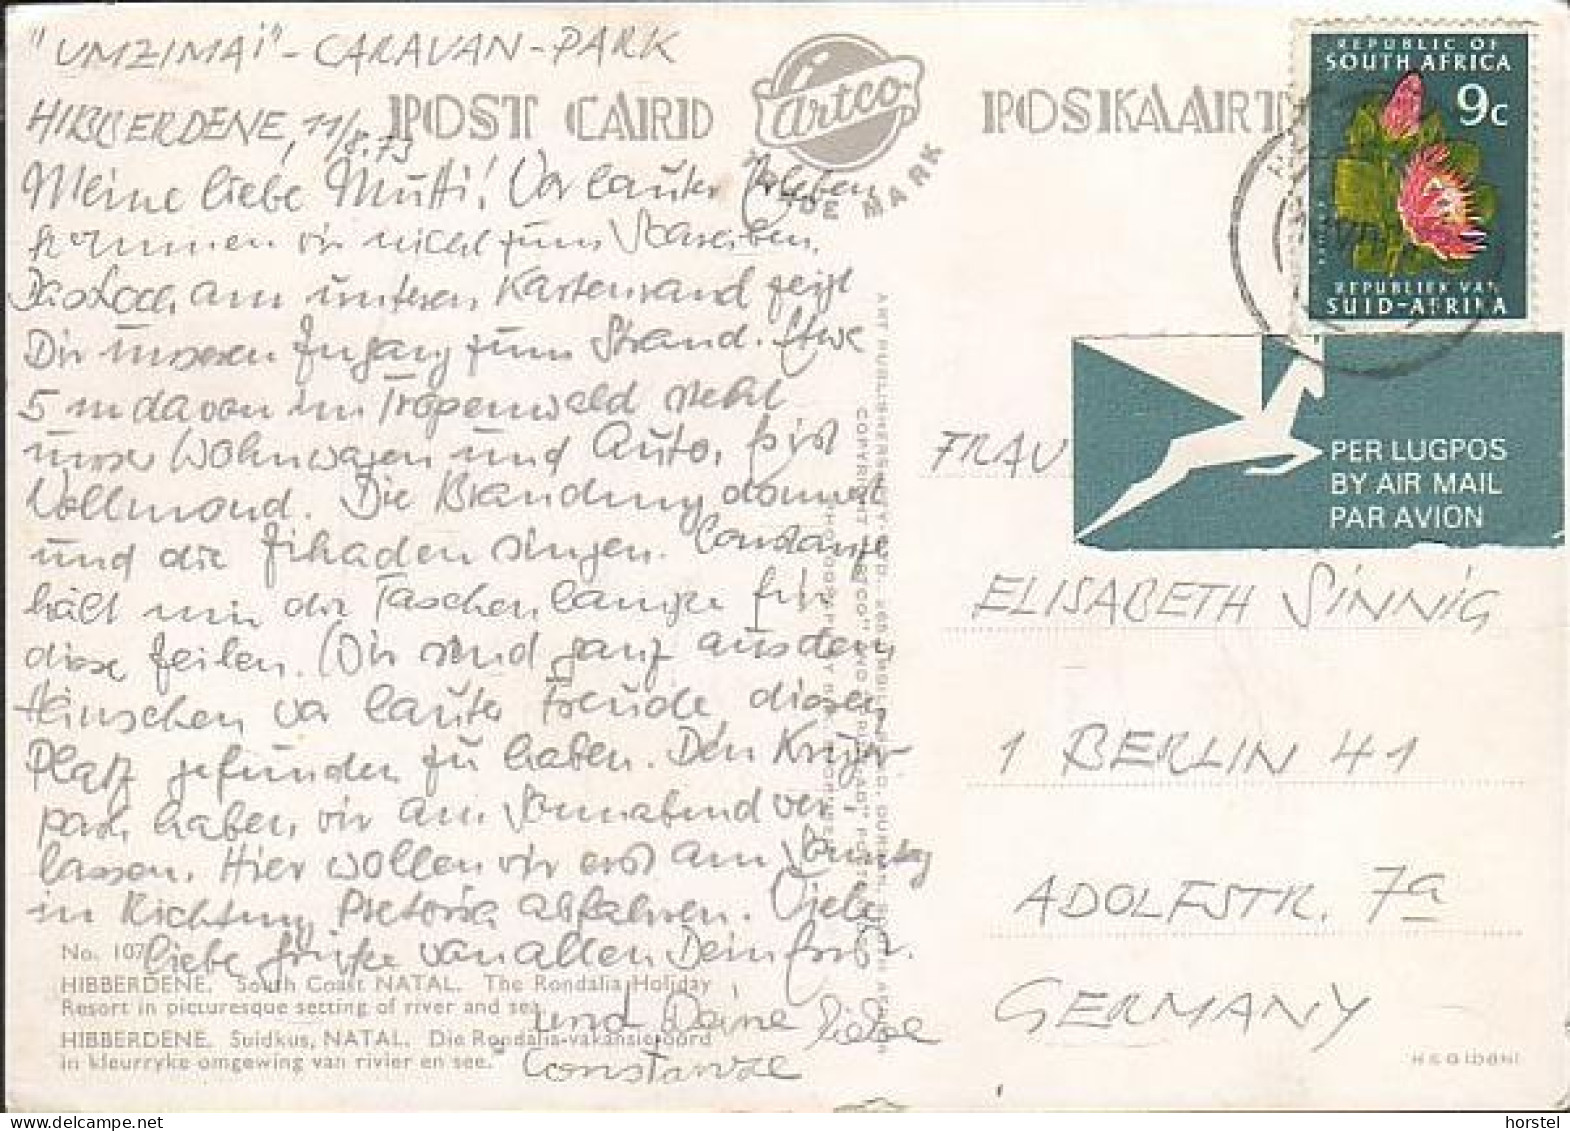 "UMZIMAI" - CARAVAN-PARK
HIBBERDENE, 11/8.73
POST CARD
Artco
TRADE MARK
POSKAART
REPUBLIC OF
SOUTH AFRICA
9c
REPUBLIEK VAN
SUID-AFRIKA
PER LUGPOS
BY AIR MAIL
PAR AVION
Meine liebe Mutti! Vor lauter Erleben
kommen wir nicht zum Schreiben.
Das Loch am unteren Kartenrand zeigt
Dir unseren Zugang zum Strand. Etwa
5 m davon im Tropenwald steht
unser Wohnwagen und Auto. Es ist
Vollmond. Die Brandung donnert
und die Zikaden singen. Constanze
hält mir die Taschenlampe für
diese Zeilen. (Wir sind ganz aus dem
Häuschen vor lauter Freude, diesen
Platz gefunden zu haben. Den Krüger
park haben wir am Sonnabend ver
lassen. Hier wollen wir erst am Sonntag
in Richtung Pretoria abfahren. Viele
liebe Grüße von allen Dein Horst.
und Deine liebe
Constanze
No. 107
HIBBERDENE. South Coast NATAL. The Rondalia Holiday
Resort in picturesque setting of river and sea.
HIBBERDENE. Suidkus, NATAL. Die Rondalia-vakansieoord
in kleurryke omgewing van rivier en see.
ART PUBLISHERS (PTY) LTD. DURBAN
COPYRIGHT "ARTCO" AND
FRAU
ELISABETH SINNIG
1 BERLIN 41
ADOLFSTR. 7a
GERMANY
horstel